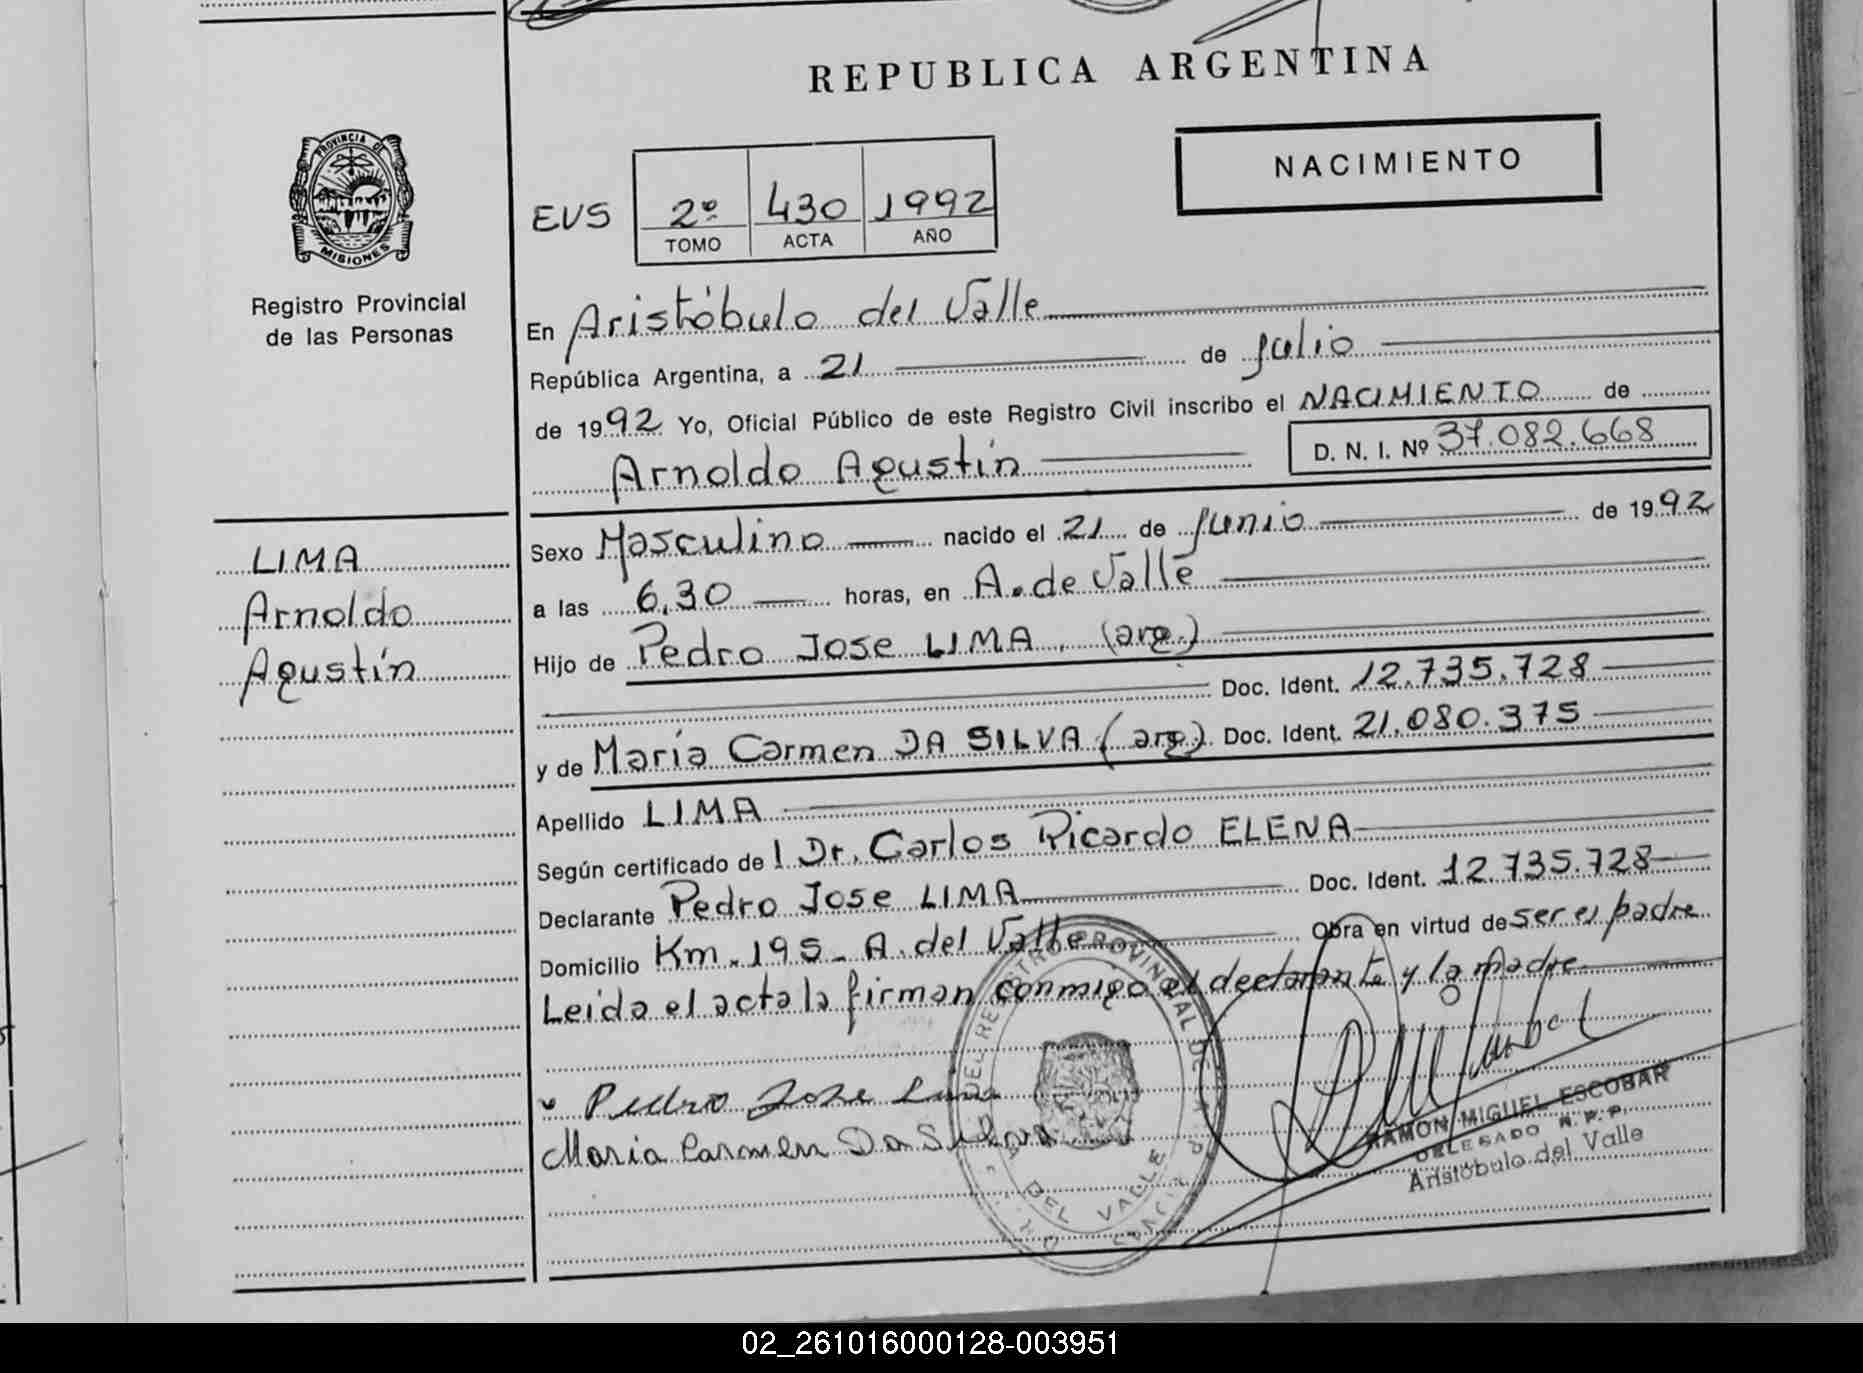 REPUBLICA ARGENTINA
PROVINCIA DE
MISIONES
Registro Provincial
de las Personas
NACIMIENTO
EVS 2º 430 1992
TOMO ACTA AÑO
En Aristóbulo del Valle
República Argentina, a 21 de Julio
de 1992 Yo, Oficial Público de este Registro Civil inscribo el NACIMIENTO de
Arnoldo Agustín D. N. I. Nº 37.082.668
LIMA
Arnoldo
Agustín
Sexo Masculino nacido el 21 de Junio de 1992
a las 6,30 horas, en A. de Valle
Hijo de Pedro Jose LIMA (arg.)
Doc. Ident. 12.735.728
y de María Carmen DA SILVA (arg.) Doc. Ident. 21.080.375
Apellido LIMA
Según certificado de l Dr. Carlos Ricardo ELENA
Declarante Pedro Jose LIMA Doc. Ident. 12.735.728
Domicilio Km. 195 - A. del Valle Obra en virtud de ser el padre
Leida el acta la firman conmigo el declarante y la madre
Pedro Jose Lima
Maria Carmen Da Silva
DEL REGISTRO PROVINCIAL DE
DEL VALLE
RAMON MIGUEL ESCOBAR
DELEGADO R.P.P.
Aristóbulo del Valle
02_261016000128-003951